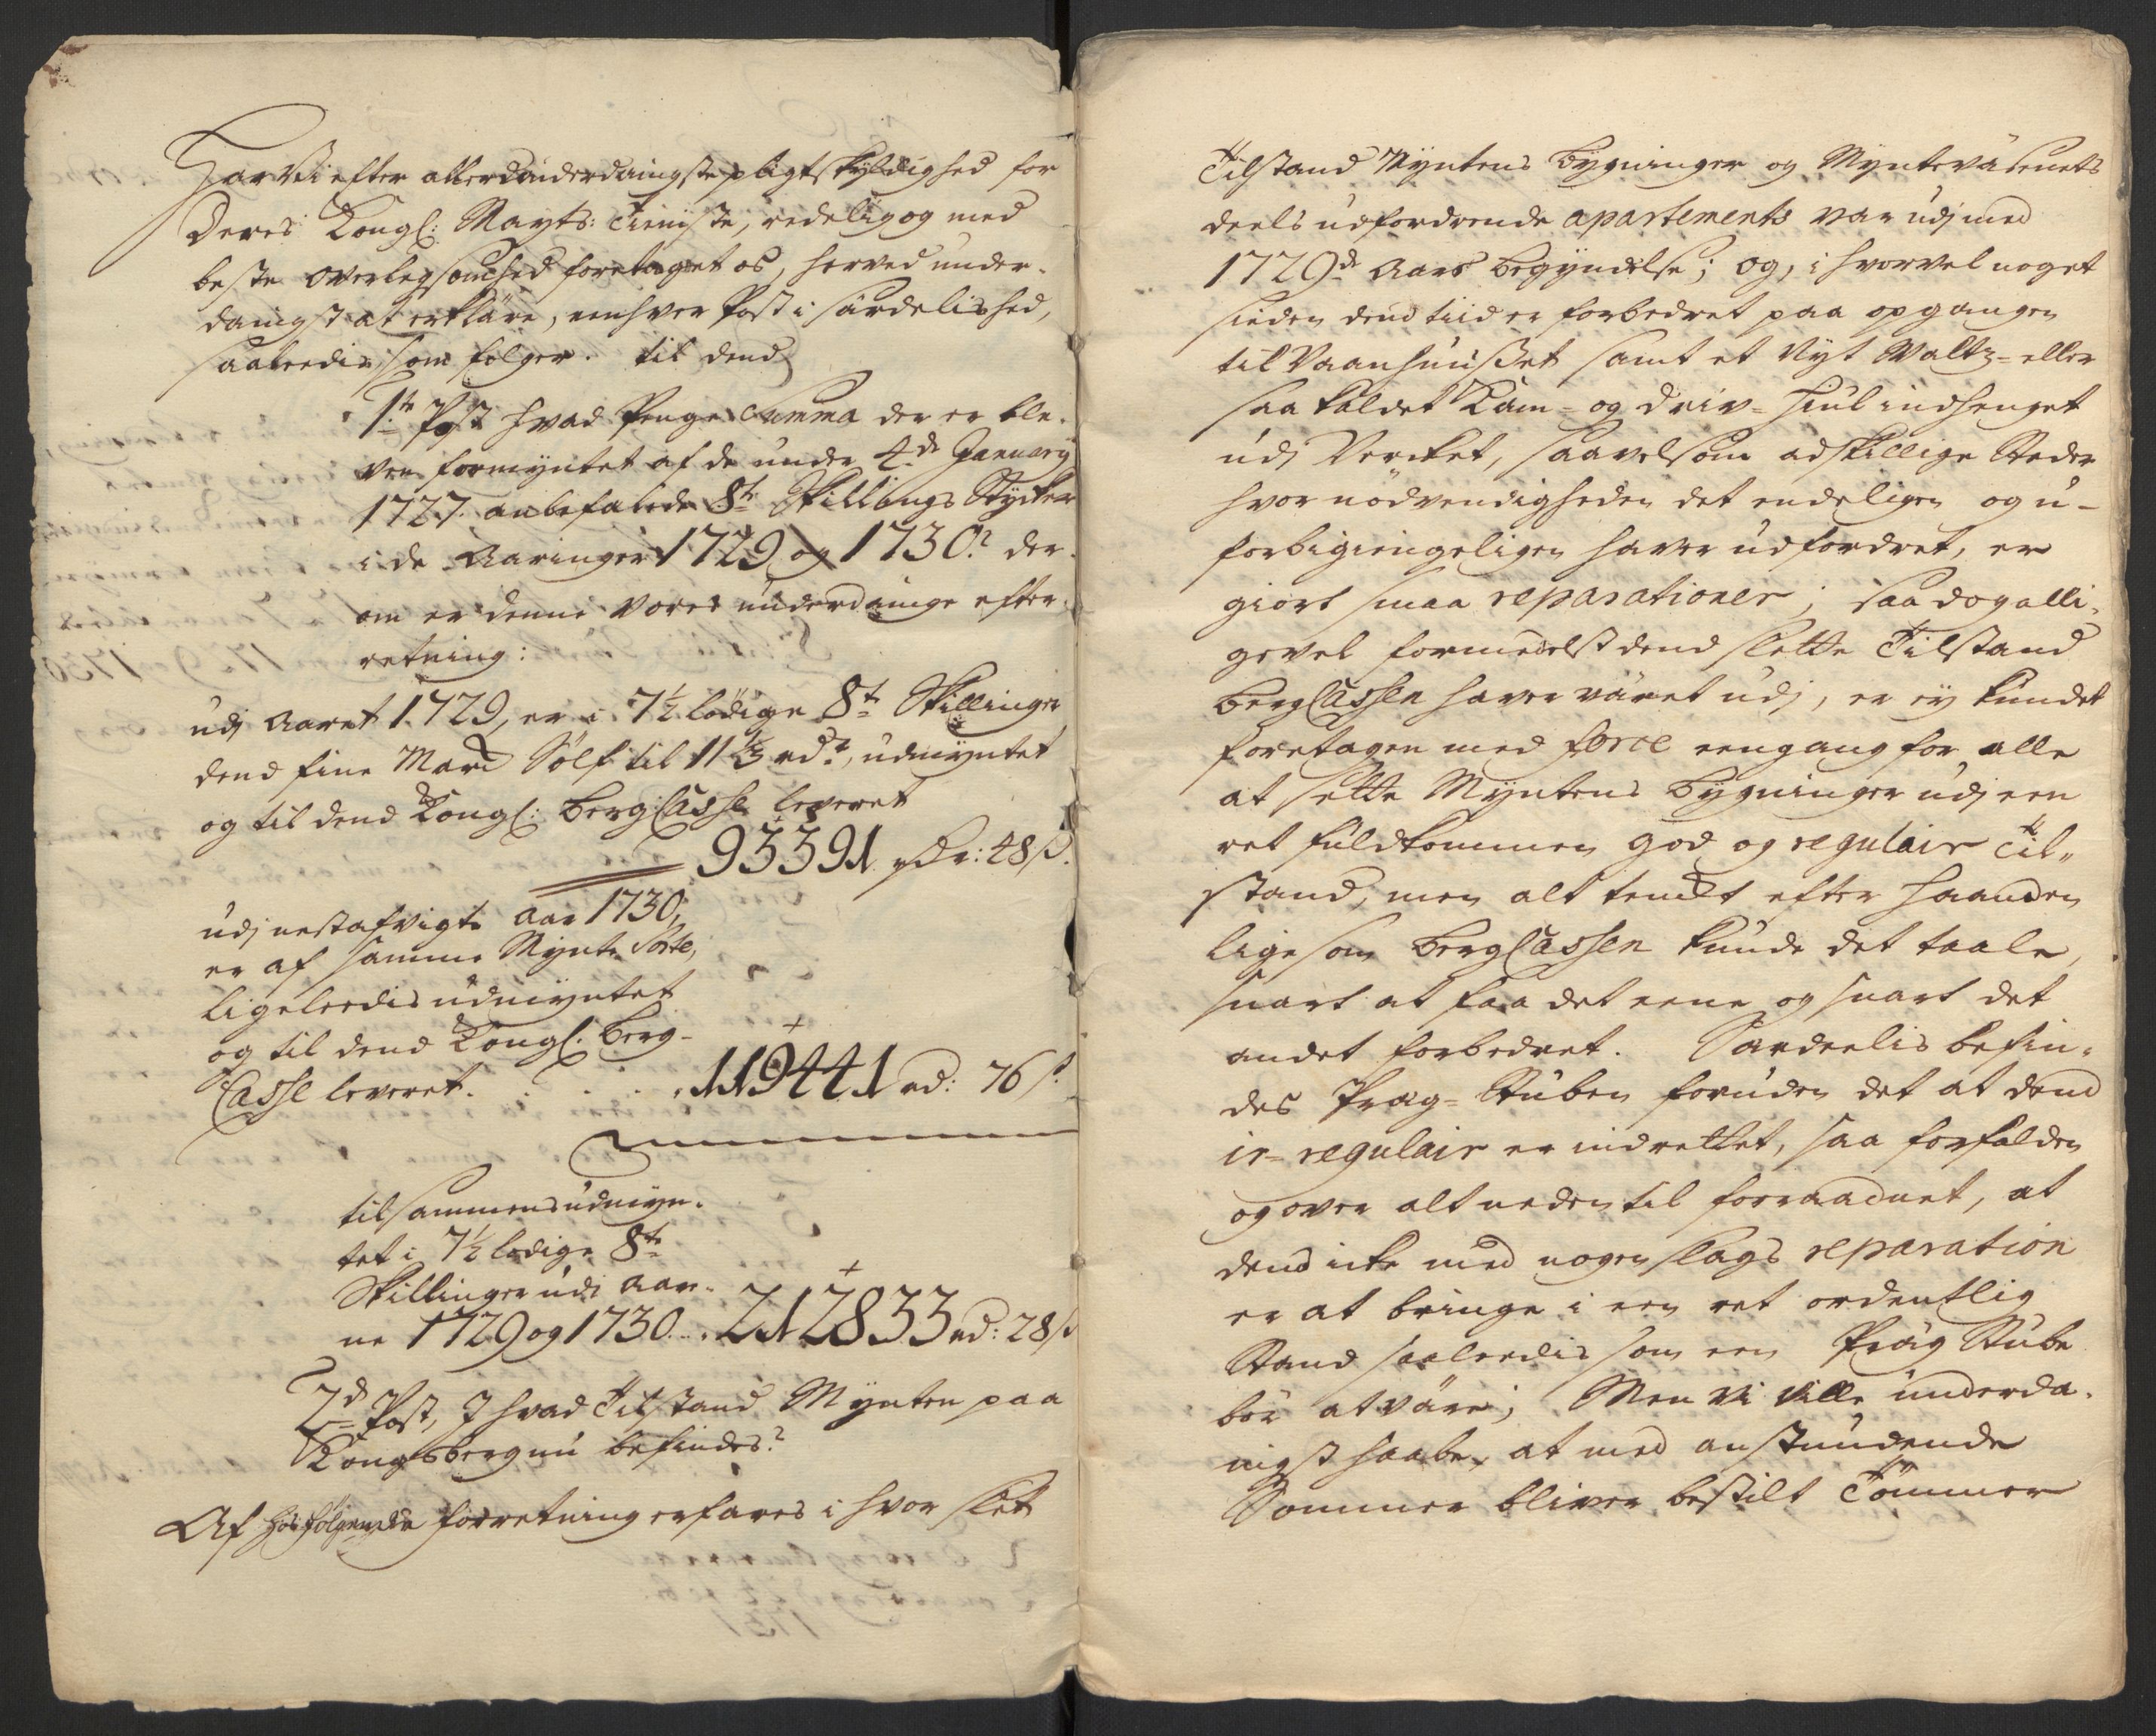 Har Vi efter allerunderdanigste pligt skyldighed for
Deres Kongl: Mayts: Tieniste, redelig og med
beste overlegsomhed foretaget os, herved under-
danigst at erklære, eenhver Post i særdelished,
saaleedis som følger. til dend
1te Post hvad Penge Summa der er ble-
ven formyntet af de under 4de January
1727 anbefalede 8te Skillings Stycker
i de Aaringer 1729 og 1730? der-
om er denne vores underdanige efter-
retning:
udj Aaret 1729, er i 7½ lödige 8te Skillinger
dend fine Marck Sölf til 11⅓ rdr, udmyntet
og til dend Kongl: Berg Casse leveret
93391 rdr: 48 s.
udj nestafvigte Aar 1730,
er af samme Mynt Sorte,
ligeleedis udmyntet
og til dend Kongl. Berg-
Casse leveret. . . . . 119441 rd: 76 s.
tilsammens udmyn-
tet i 7½ lödige 8te
Skillinger udj Aar-
ne 1729 og 1730 . . . 212833 rd: 28 s
2den Post, I hvad Tilstand Mynten paa
Kongsberg nu befindes?
Af hosfölgende forretning erfares i hvor slet
Tilstand Myntens Bygninger og Myntevæsenets
deels udfordrende apartements var udj med
1729de Aars begyndelse; og, i hvorvel noget
sieden dend tiid er forbedret paa opgangen
til Vaanhuuset samt et Nyt Waltz- eller
saa kaldet Kam- og Driv-Hiul indhenget
udj Vercket, saavelsom adskillige Steder
hvor nödvendigheden det endeligen og u-
forbigiengeligen haver udfordret, er
giort smaa reparationer; saa dog alli-
gevel formedelst dend slette Tilstand
Berg Cassen haver været udj, er ey kundet
foretagen med force eengang for alle
at sette Myntens Bygninger udj een
ret fuldkommen god og regulair Til-
stand, men alt tendt efter haanden
ligesom Berg Cassen kunde det taale,
snart at faa det eene og snart det
andet forbedret. Særdeelis befin-
des Præg-Stuben foruden det at dend
ir-regulair er indrettet, saa forfalden
og over alt neden til forraadnet, at
dend icke med nogen slags reparation
er at bringe i een ret ordentlig
Stand saaleedis som een Præg Stube
bör at være; Men vi ville underda-
nigst haabe, at med anstundende
Sommer bliver bestilt Tömmer